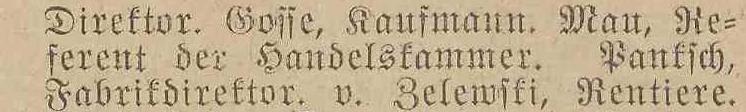 Direktor. Gosse, Kaufmann. Mau, Re=
ferent der Handelskammer. Panksch,
Fabrikdirektor. v. Zelewski, Rentiere.